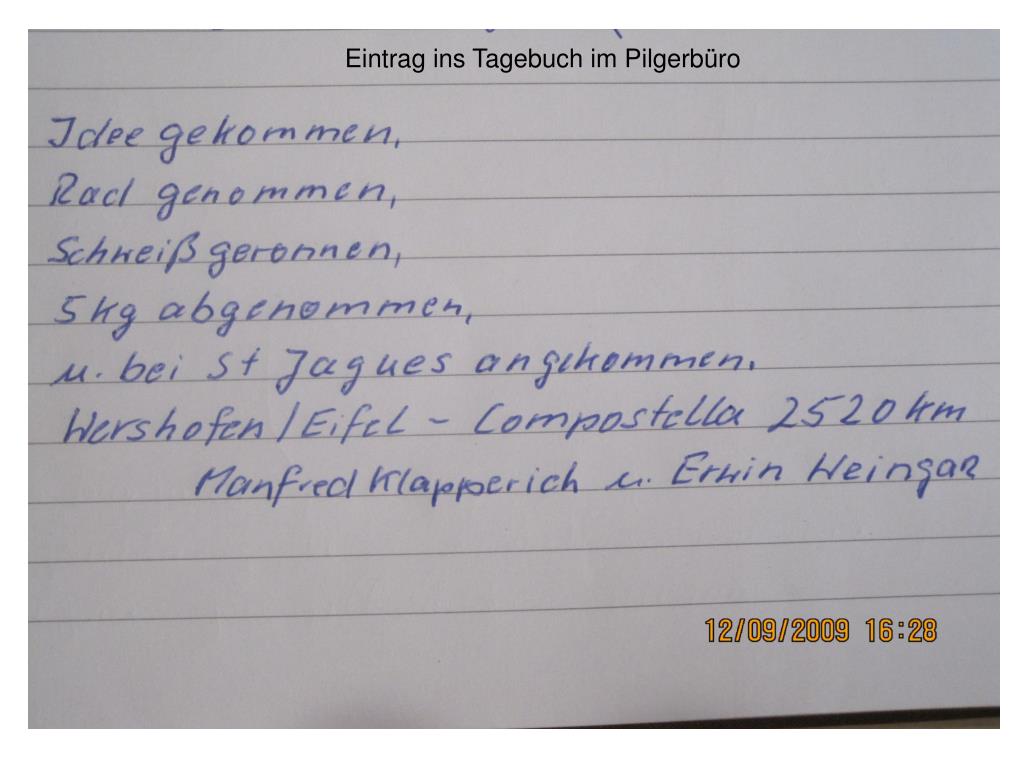 Eintrag ins Tagebuch im Pilgerbüro
Idee gekommen,
Rad genommen,
Schweiß geronnen,
5kg abgenommen,
u. bei St Jagues angekommen.
Wershofen/Eifel - Compostella 2520km
Manfred Klapperich u. Erwin Weingar
12/09/2009 16:28